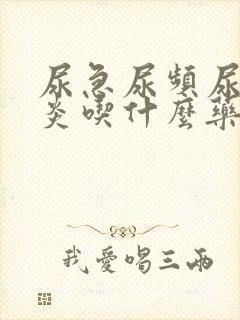 尿急尿頻尿
炎喫什麼藥
我愛唱三兩